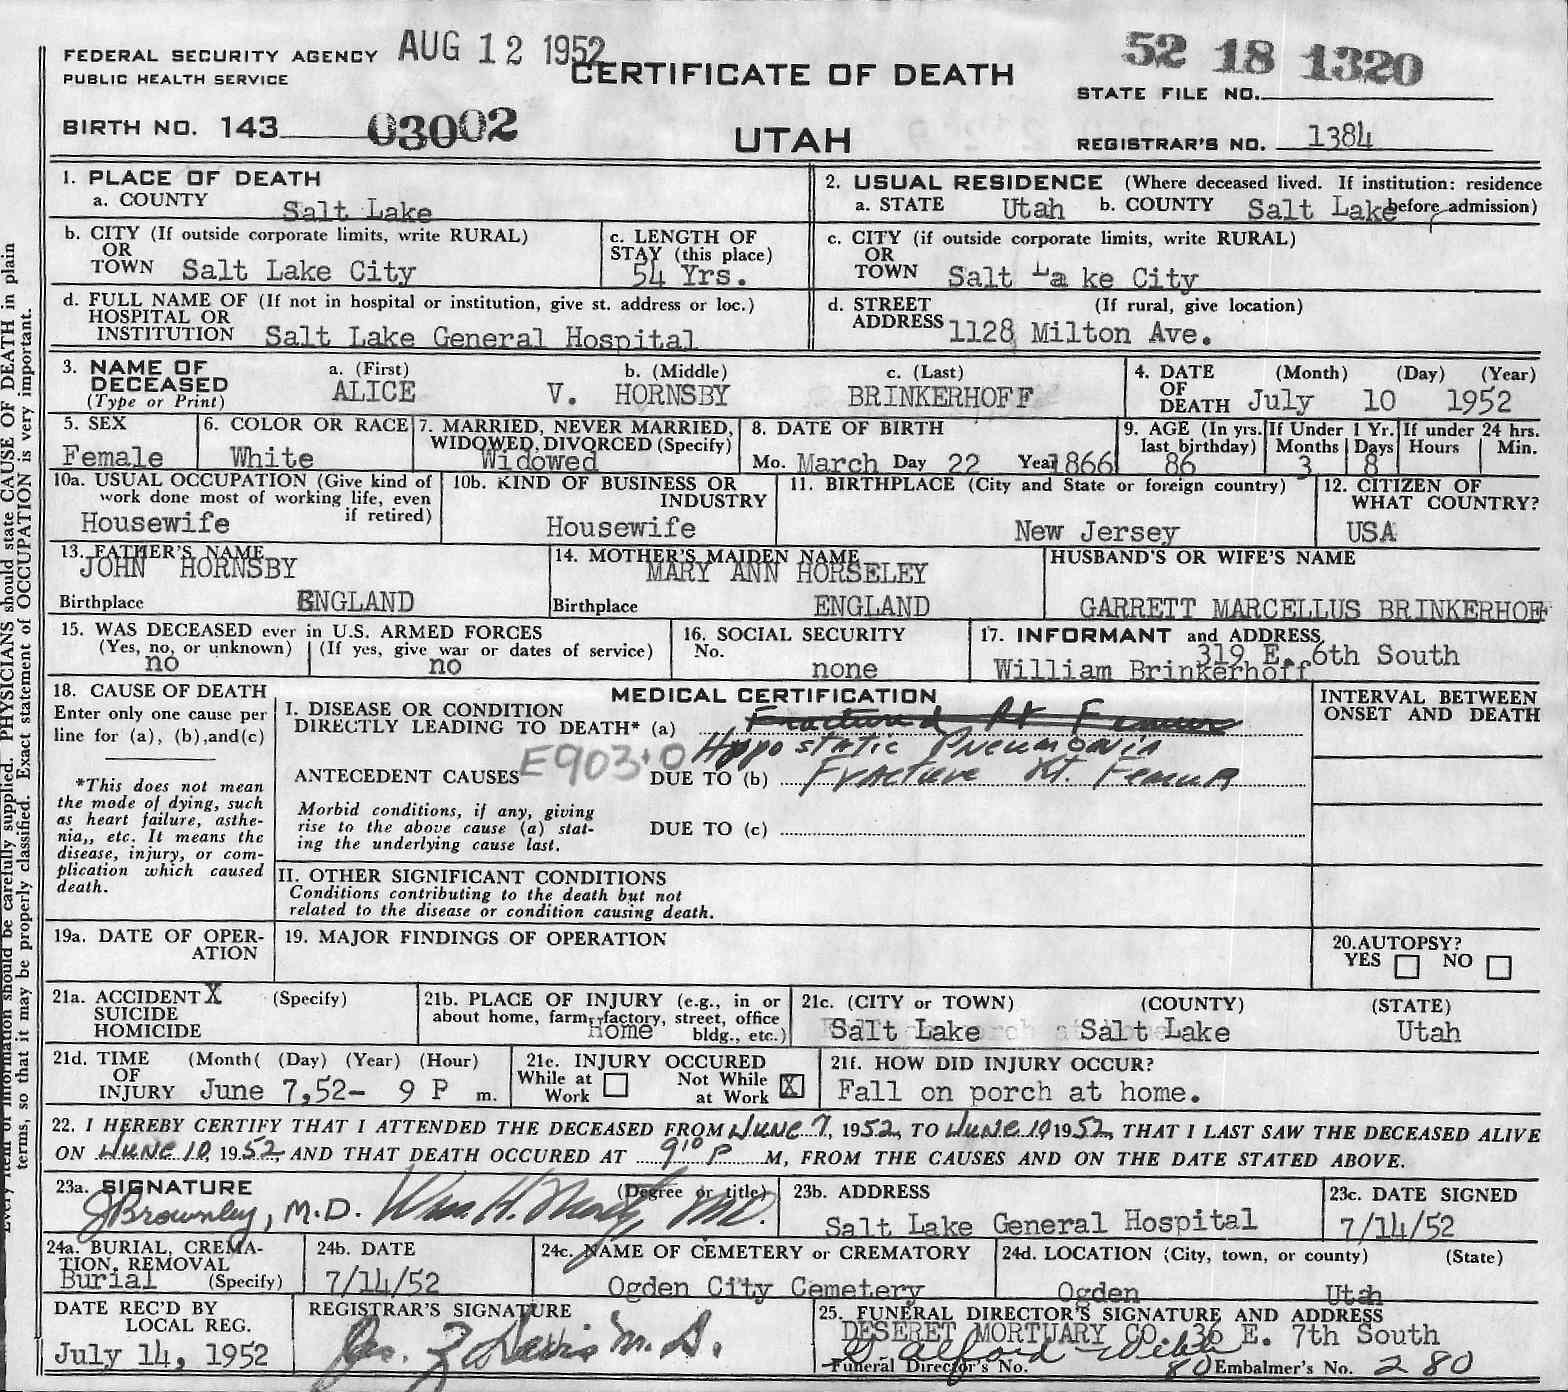 FEDERAL SECURITY AGENCY AUG 12 1952 CERTIFICATE OF DEATH 52 18 1320
PUBLIC HEALTH SERVICE
STATE FILE NO.
BIRTH NO. 143 03002 UTAH REGISTRAR'S NO. 1384
1. PLACE OF DEATH
a. COUNTY Salt Lake
2. USUAL RESIDENCE (Where deceased lived. If institution: residence before admission)
a. STATE Utah b. COUNTY Salt Lake
b. CITY (If outside corporate limits, write RURAL)
OR
TOWN Salt Lake City
c. LENGTH OF
STAY (this place)
54 Yrs.
c. CITY (if outside corporate limits, write RURAL)
OR
TOWN Salt La ke City
d. FULL NAME OF (If not in hospital or institution, give st. address or loc.)
HOSPITAL OR
INSTITUTION Salt Lake General Hospital
d. STREET (If rural, give location)
ADDRESS 1128 Milton Ave.
3. NAME OF
DECEASED
(Type or Print)
a. (First) b. (Middle) c. (Last)
ALICE V. HORNSBY BRINKERHOFF
4. DATE (Month) (Day) (Year)
OF
DEATH July 10 1952
5. SEX
Female
6. COLOR OR RACE
White
7. MARRIED, NEVER MARRIED,
WIDOWED, DIVORCED (Specify)
Widowed
8. DATE OF BIRTH
Mo. March Day 22 Year 1866
9. AGE (In yrs. last birthday)
86
If Under 1 Yr.
Months Days
3 8
If under 24 hrs.
Hours Min.
10a. USUAL OCCUPATION (Give kind of
work done most of working life, even
if retired)
Housewife
10b. KIND OF BUSINESS OR
INDUSTRY
Housewife
11. BIRTHPLACE (City and State or foreign country)
New Jersey
12. CITIZEN OF
WHAT COUNTRY?
USA
13. FATHER'S NAME
JOHN HORNSBY
Birthplace ENGLAND
14. MOTHER'S MAIDEN NAME
MARY ANN HORSELEY
Birthplace ENGLAND
HUSBAND'S OR WIFE'S NAME
GARRETT MARCELLUS BRINKERHOF
15. WAS DECEASED ever in U.S. ARMED FORCES
(Yes, no, or unknown) (If yes, give war or dates of service)
no no
16. SOCIAL SECURITY
No.
none
17. INFORMANT and ADDRESS
319 E. 6th South
William Brinkerhoff
18. CAUSE OF DEATH
Enter only one cause per
line for (a), (b), and (c)
*This does not mean
the mode of dying, such
as heart failure, asthe-
nia,, etc. It means the
disease, injury, or com-
plication which caused
death.
MEDICAL CERTIFICATION
I. DISEASE OR CONDITION
DIRECTLY LEADING TO DEATH* (a) Fractured Rt Femur
Hypostatic Pneumonia
ANTECEDENT CAUSES E903+0 DUE TO (b) Fracture Rt. Femur
Morbid conditions, if any, giving
rise to the above cause (a) stat-
ing the underlying cause last.
DUE TO (c)
INTERVAL BETWEEN
ONSET AND DEATH
II. OTHER SIGNIFICANT CONDITIONS
Conditions contributing to the death but not
related to the disease or condition causing death.
19a. DATE OF OPER-
ATION
19. MAJOR FINDINGS OF OPERATION
20. AUTOPSY?
YES NO
21a. ACCIDENT X (Specify)
SUICIDE
HOMICIDE
21b. PLACE OF INJURY (e.g., in or
about home, farm, factory, street, office
bldg., etc.)
Home
21c. (CITY or TOWN) (COUNTY) (STATE)
Salt Lake Salt Lake Utah
21d. TIME (Month( (Day) (Year) (Hour)
OF
INJURY June 7,52- 9 P m.
21e. INJURY OCCURED
While at Work Not While at Work X
21f. HOW DID INJURY OCCUR?
Fall on porch at home.
22. I HEREBY CERTIFY THAT I ATTENDED THE DECEASED FROM JUNE 7, 1952, TO JUNE 10 1952, THAT I LAST SAW THE DECEASED ALIVE
ON JUNE 10, 1952, AND THAT DEATH OCCURED AT 9:10 P M, FROM THE CAUSES AND ON THE DATE STATED ABOVE.
23a. SIGNATURE (Degree or title)
J Brownley, M.D. Wm H. M.D.
23b. ADDRESS
Salt Lake General Hospital
23c. DATE SIGNED
7/14/52
24a. BURIAL, CREMA-
TION, REMOVAL
Burial (Specify)
24b. DATE
7/14/52
24c. NAME OF CEMETERY or CREMATORY
Ogden City Cemetery
24d. LOCATION (City, town, or county) (State)
Ogden Utah
DATE REC'D BY
LOCAL REG.
July 14, 1952
REGISTRAR'S SIGNATURE
Davis M.D.
25. FUNERAL DIRECTOR'S SIGNATURE AND ADDRESS
DESERET MORTUARY CO. 36 E. 7th South
Funeral Director's No. 80 Embalmer's No. 280
Every item of information should be carefully supplied. PHYSICIANS should state CAUSE OF DEATH in plain
terms, so that it may be properly classified. Exact statement of OCCUPATION is very important.